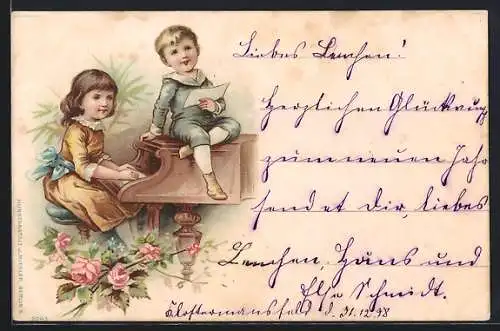 Liebes Lenchen!
Herzlichen Glückwunsch
zum neuen Jahr
sendet Dir, liebes
Lenchen, Hans und
Else Schmidt.
Klostermansfeld d. 31.12.98